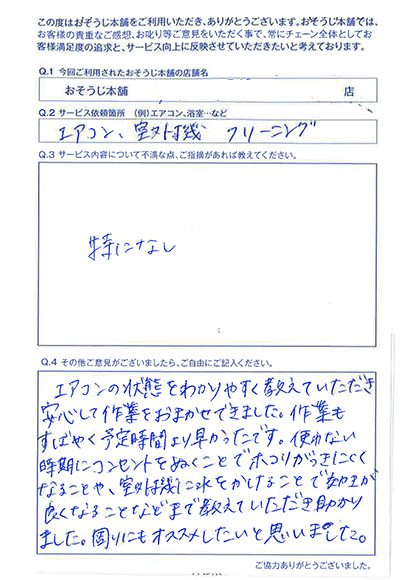 この度はおそうじ本舗をご利用いただき、ありがとうございます。おそうじ本舗では、
お客様の貴重なご感想、お叱り等ご意見をいただく事で、常にチェーン全体としてお
客様満足度の追求と、サービス向上に反映させていただきたいと考えております。
Q.1 今回ご利用されたおそうじ本舗の店舗名
おそうじ本舗 店
Q.2 サービス依頼箇所 (例)エアコン、浴室…など
エアコン、室外機 クリーニング
Q.3 サービス内容について不満な点、ご指摘があれば教えてください。
特になし
Q.4 その他ご意見がございましたら、ご自由にご記入ください。
エアコンの状態をわかりやすく教えていただき
安心して作業をおまかせできました。作業も
すばやく予定時間より早かったです。使わない
時期にコンセントをぬくことでホコリがつきにくく
なることや、室外機に水をかけることで効率が
良くなることなどまで教えていただき助かり
ました。周りにもオススメしたいと思いました。
ご協力ありがとうございました。